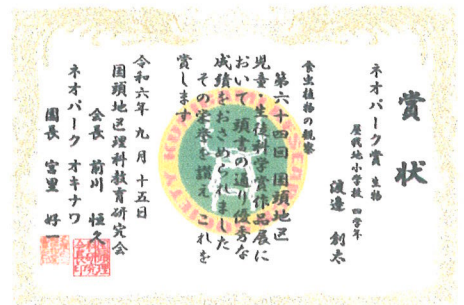 賞状
ネオパーク賞 生物
屋我地小学校 四学年
渡邉 創太
食虫植物の観察
第六十四回 国頭地区
児童・生徒科学賞作品展に
おいて 頭書の通り優秀な
成績をおさめられました
その栄誉を讃え これを
賞します
令和六年 九月 十五日
国頭地区理科教育研究会
会長 前川 恒久
ネオパーク オキナワ
園長 富里 好一